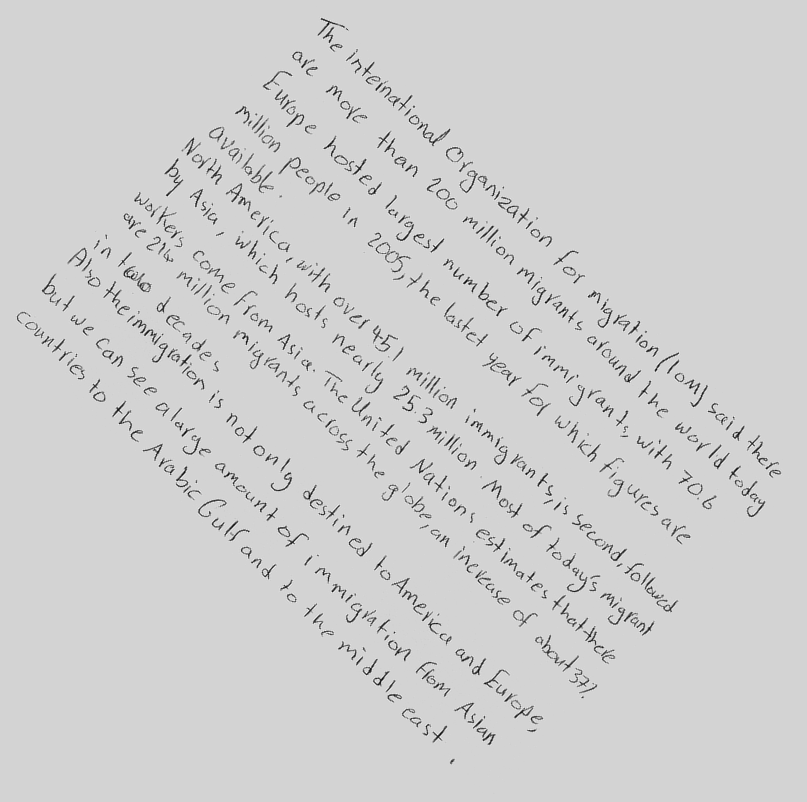 The international Organization for migration (IOM) said there
are more than 200 million migrants around the world today
Europe hosted largest number of immigrants, with 70.6
million people in 2005, the lastet year for which figures are
available.
North America, with over 45,1 million immigrants, is second, followed
by Asia, which hosts nearly 25.3 million. Most of today's migrant
workers come from Asia. The United Nations estimates that there
are 214 million migrants across the globe, an increase of about 37%
in two decades
Also the immigration is not only destined to America and Europe,
but we can see a large amount of immigration from Asian
countries to the Arabic Gulf and to the middle east.